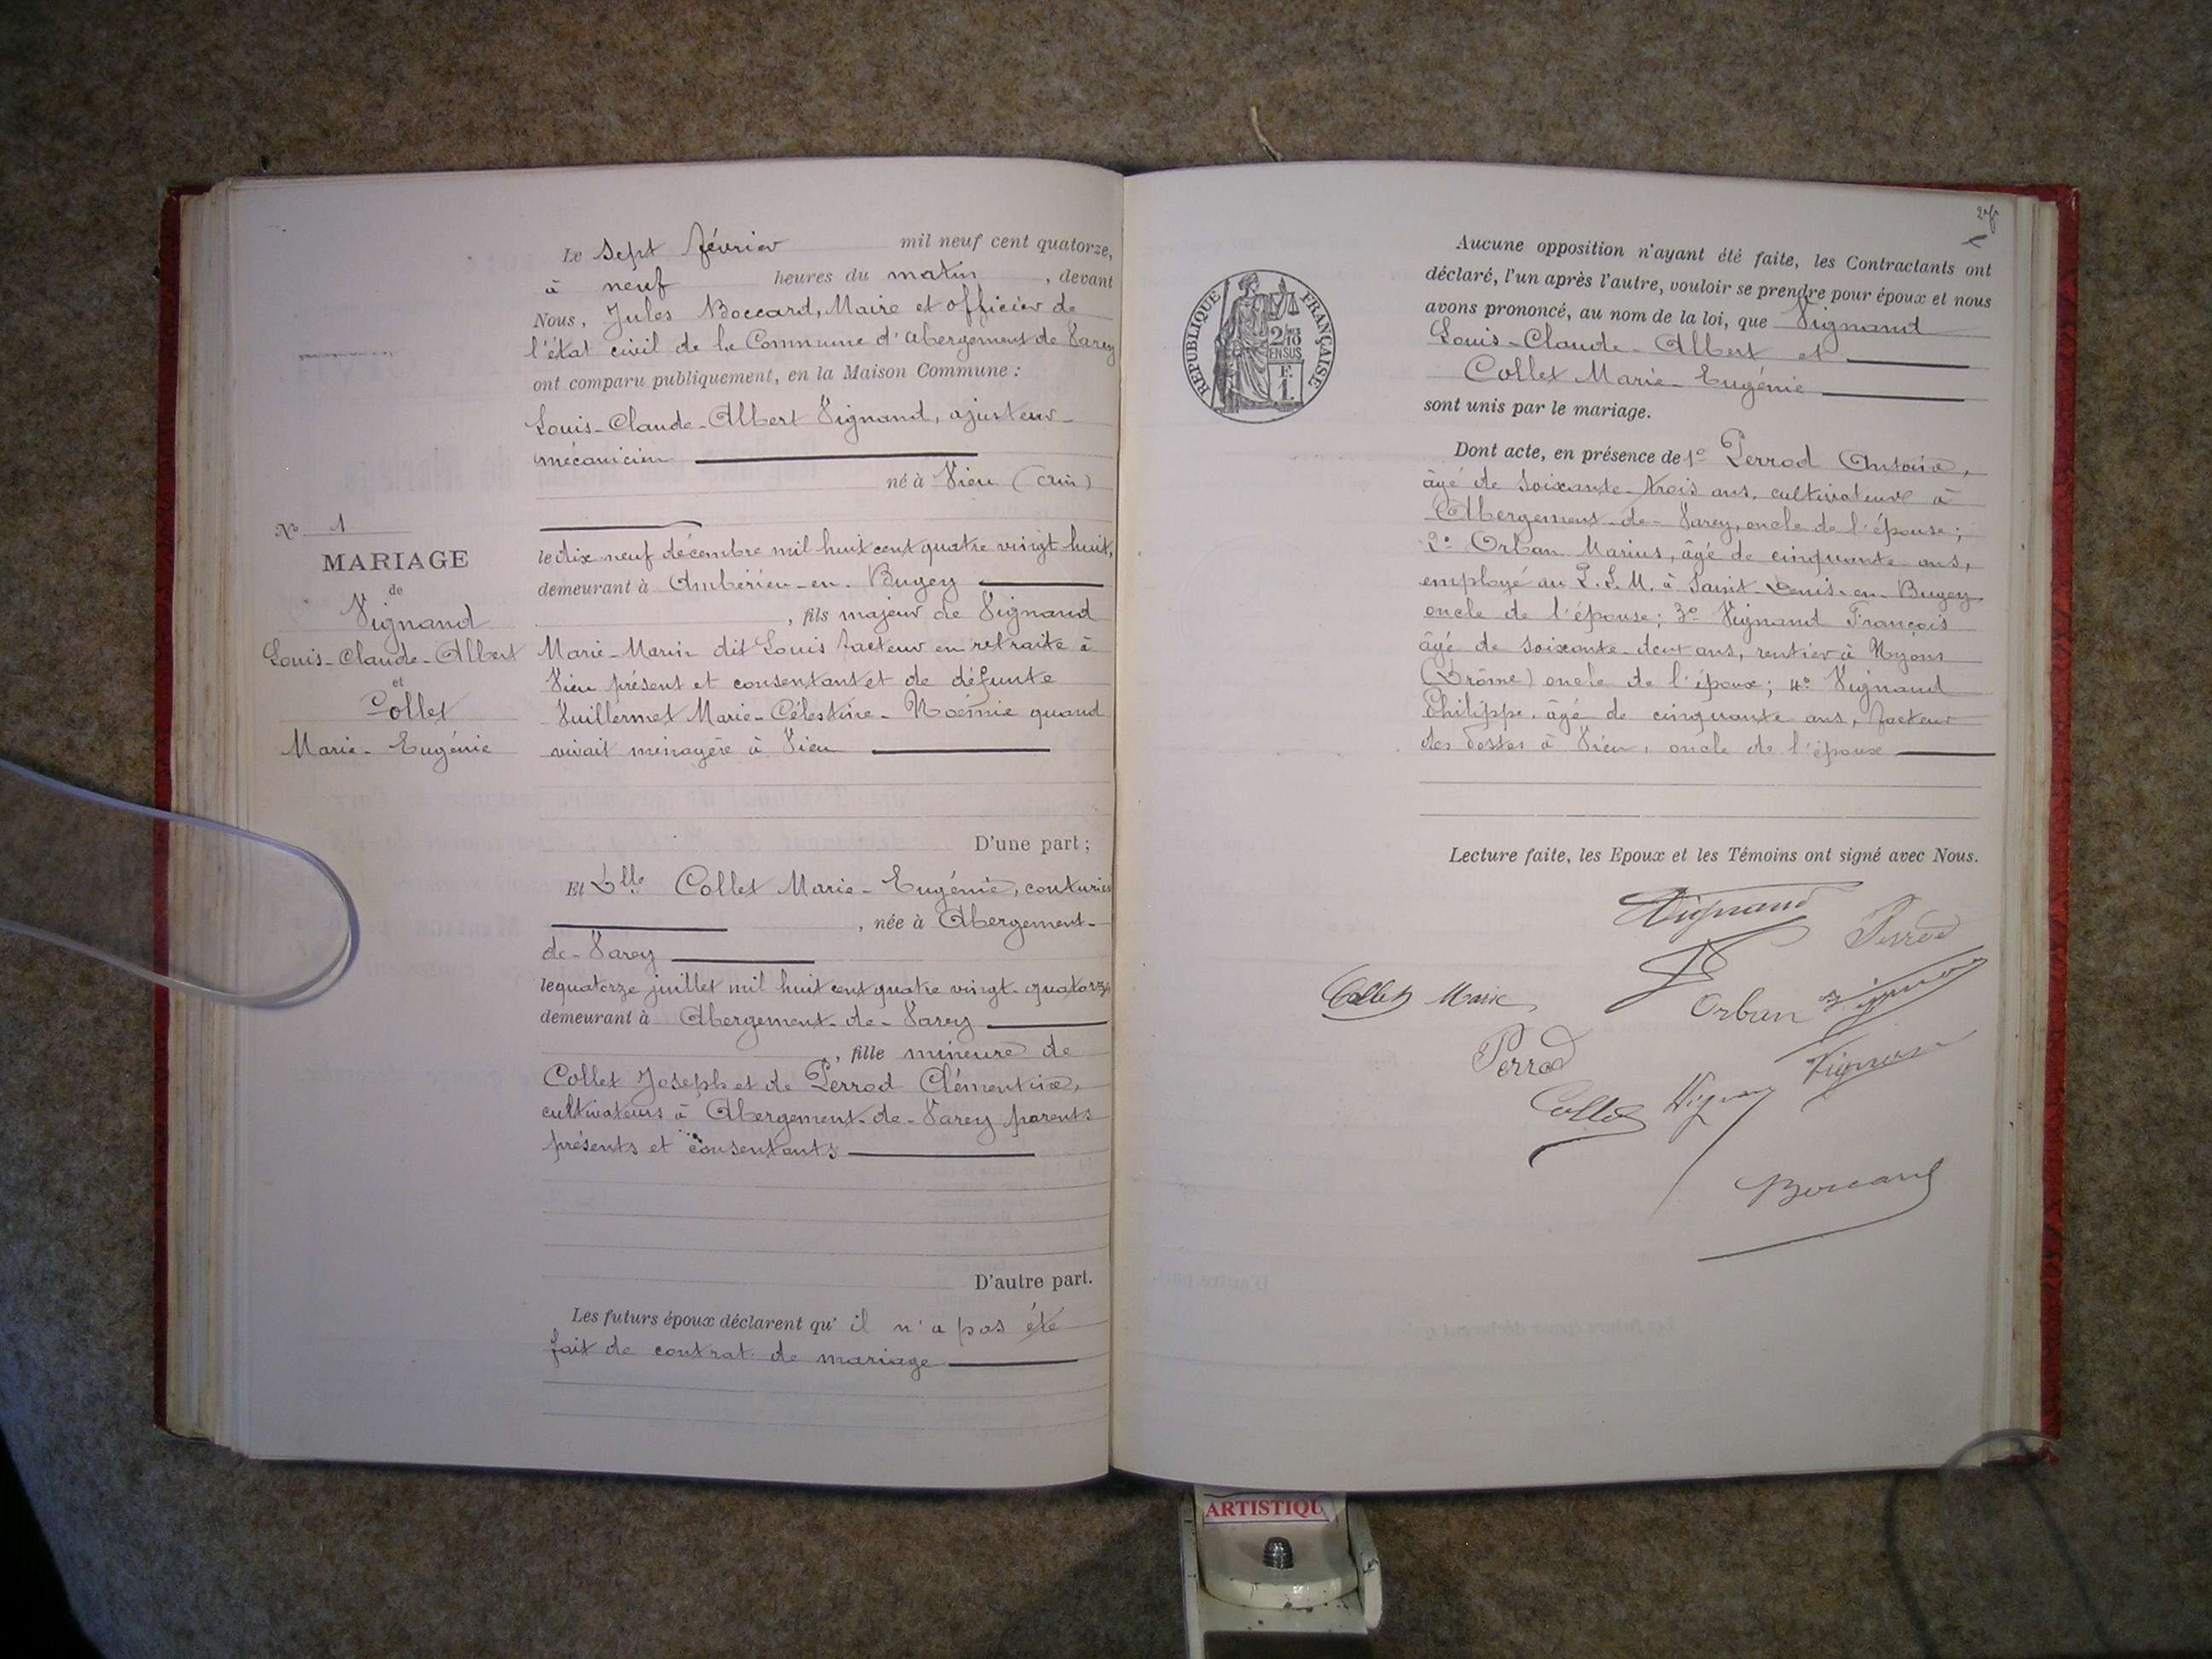 N° 1
MARIAGE
de
Vignand
Louis-Claude-Albert
et
Collet
Marie-Eugénie
Le sept février mil neuf cent quatorze,
à neuf heures du matin, devant
Nous, Jules Boccard, Maire et officier de
l'état civil de la Commune d'Abergement de Varey
ont comparu publiquement, en la Maison Commune :
Louis-Claude-Albert Vignand, ajusteur-
mécanicien
né à Vieu (Ain)
le dix neuf décembre mil huit cent quatre vingt huit,
demeurant à Ambérieu-en-Bugey
, fils majeur de Vignand
Marie-Marin dit Louis facteur en retraite à
Vieu présent et consentant et de défunte
Vuillermet Marie-Célestine-Noémie quand
vivait ménagère à Vieu
D'une part ;
Et Dlle Collet Marie-Eugénie, couturière
, née à Abergement-
de-Varey
le quatorze juillet mil huit cent quatre vingt-quatorze
demeurant à Abergement-de-Varey
, fille mineure de
Collet Joseph et de Perrod Clémentine,
cultivateurs à Abergement-de-Varey parents
présents et consentants
D'autre part.
Les futurs époux déclarent qu'il n'a pas été
fait de contrat de mariage
RÉPUBLIQUE FRANÇAISE
2/10
EN SUS
F.
1.
Aucune opposition n'ayant été faite, les Contractants ont
déclaré, l'un après l'autre, vouloir se prendre pour époux et nous
avons prononcé, au nom de la loi, que Vignand
Louis-Claude-Albert et
Collet Marie-Eugénie
sont unis par le mariage.
Dont acte, en présence de 1° Perrod Antoine,
âgé de soixante-trois ans, cultivateur à
Abergement-de-Varey, oncle de l'épouse ;
2° Orban Marius, âgé de cinquante ans,
employé au P.L.M. à Saint-Denis-en-Bugey
oncle de l'épouse ; 3° Vignand François
âgé de soixante-deux ans, rentier à Nyons
(Drôme) oncle de l'époux ; 4° Vignand
Philippe, âgé de cinquante ans, facteur
des Postes à Vieu, oncle de l'époux
Lecture faite, les Epoux et les Témoins ont signé avec Nous.
Vignand
Perrod
Collet Marie
Orban Vignand
Perrod
Vignand
Collet Vignand
Boccard
ARTISTIQU